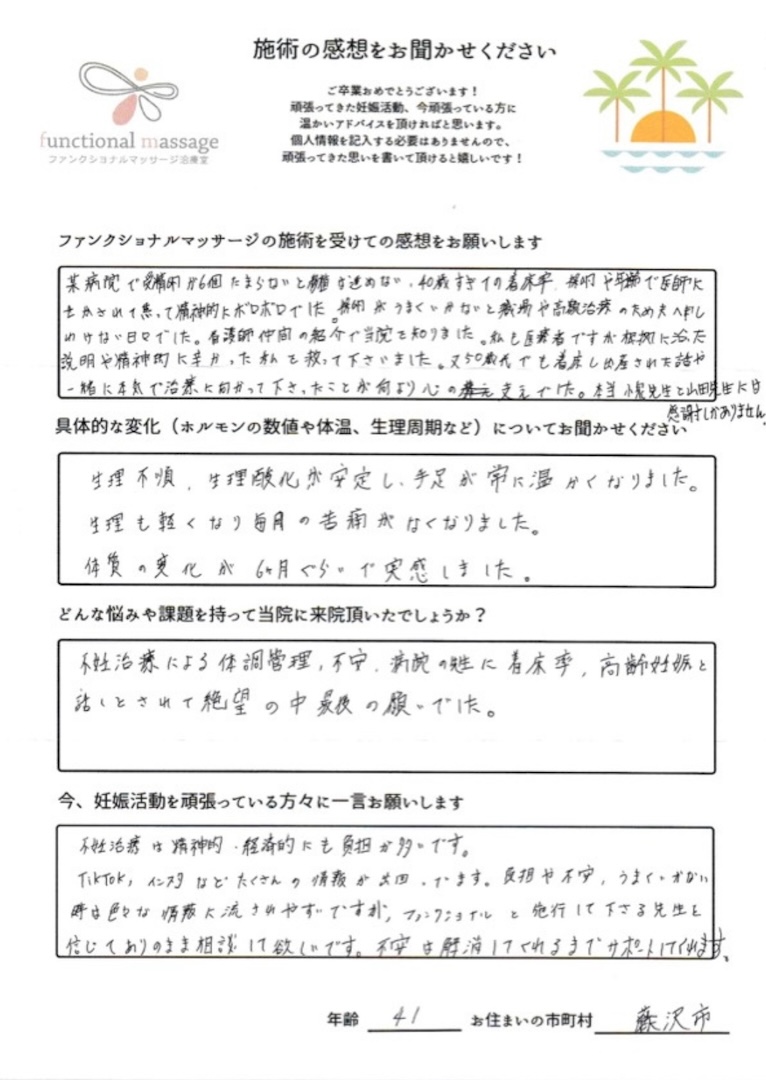 施術の感想をお聞かせください
functional massage
ファンクショナルマッサージ治療室
ご卒業おめでとうございます！
頑張ってきた妊娠活動、今頑張っている方に
温かいアドバイスを頂ければと思います。
個人情報を記入する必要はありませんので、
頑張ってきた思いを書いて頂けると嬉しいです！
ファンクショナルマッサージの施術を受けての感想をお願いします
某病院で受精卵が6個たまらないと移植は進めない、40歳すぎての着床率、採卵や年齢で医師に
されて焦って精神的にボロボロでした。採卵がうまくいかないと職場や高額治療のため夫へ申し
わけない日々でした。看護師仲間の紹介で当院を知りました。私も医療者ですが根拠に沿った
説明や精神的に辛かった私を救って下さいました。又50歳代でも着床し出産された話や
一緒に本気で治療に向かって下さったことが何より心の支えでした。本当 先生と山田先生には
感謝しかありません。
具体的な変化（ホルモンの数値や体温、生理周期など）についてお聞かせください
生理不順、生理酸化が安定し、手足が常に温かくなりました。
生理も軽くなり毎月の苦痛がなくなりました。
体質の変化が6ヶ月ぐらいで実感しました。
どんな悩みや課題を持って当院に来院頂いたでしょうか？
不妊治療による体調管理、不安、病院の先生に着床率、高齢妊娠と
話しとされて絶望の中最後の願いでした。
今、妊娠活動を頑張っている方々に一言お願いします
不妊治療は精神的・経済的にも負担が多いです。
TikTok、インスタなどたくさんの情報が出回っています。負担や不安、うまくいかない
時は色々な情報に流されやすいですが、ファンクショナルと施行して下さる先生を
信じてありのまま相談して欲しいです。不安は解消してくれるまでサポートしてくれます。
年齢 41 お住まいの市町村 藤沢市